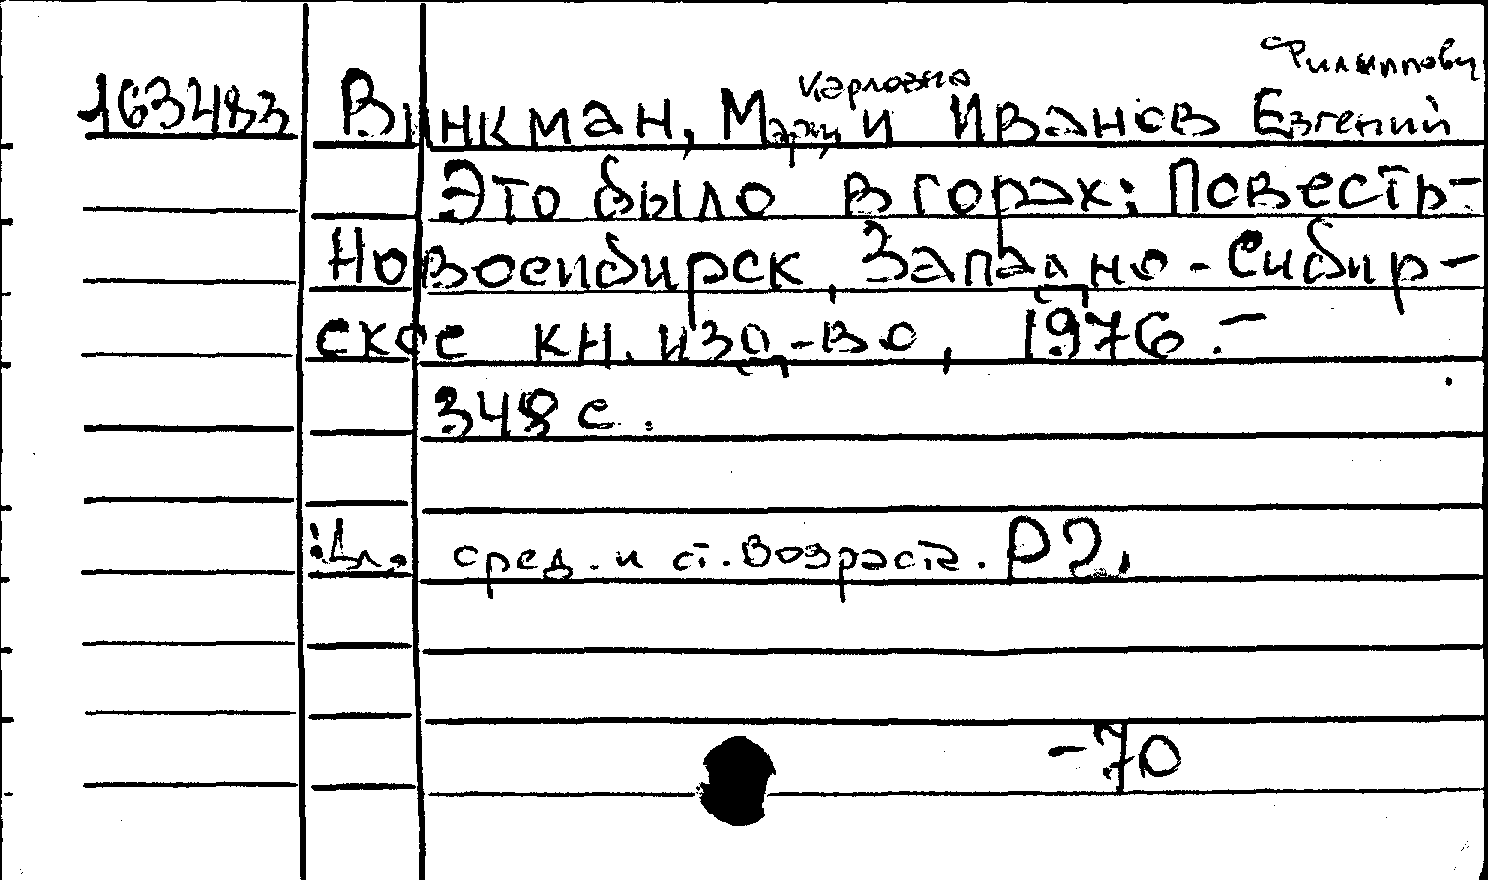 163483 Винкман, Марии Карловна и Иванов Евгений Филиппович
Это было в горах: Повесть-
Новосибирск, Западно-Сибир-
ское кн. изд-во, 1976.-
348 с.
:Дл. сред. и ст. возраста. Р2.
-70